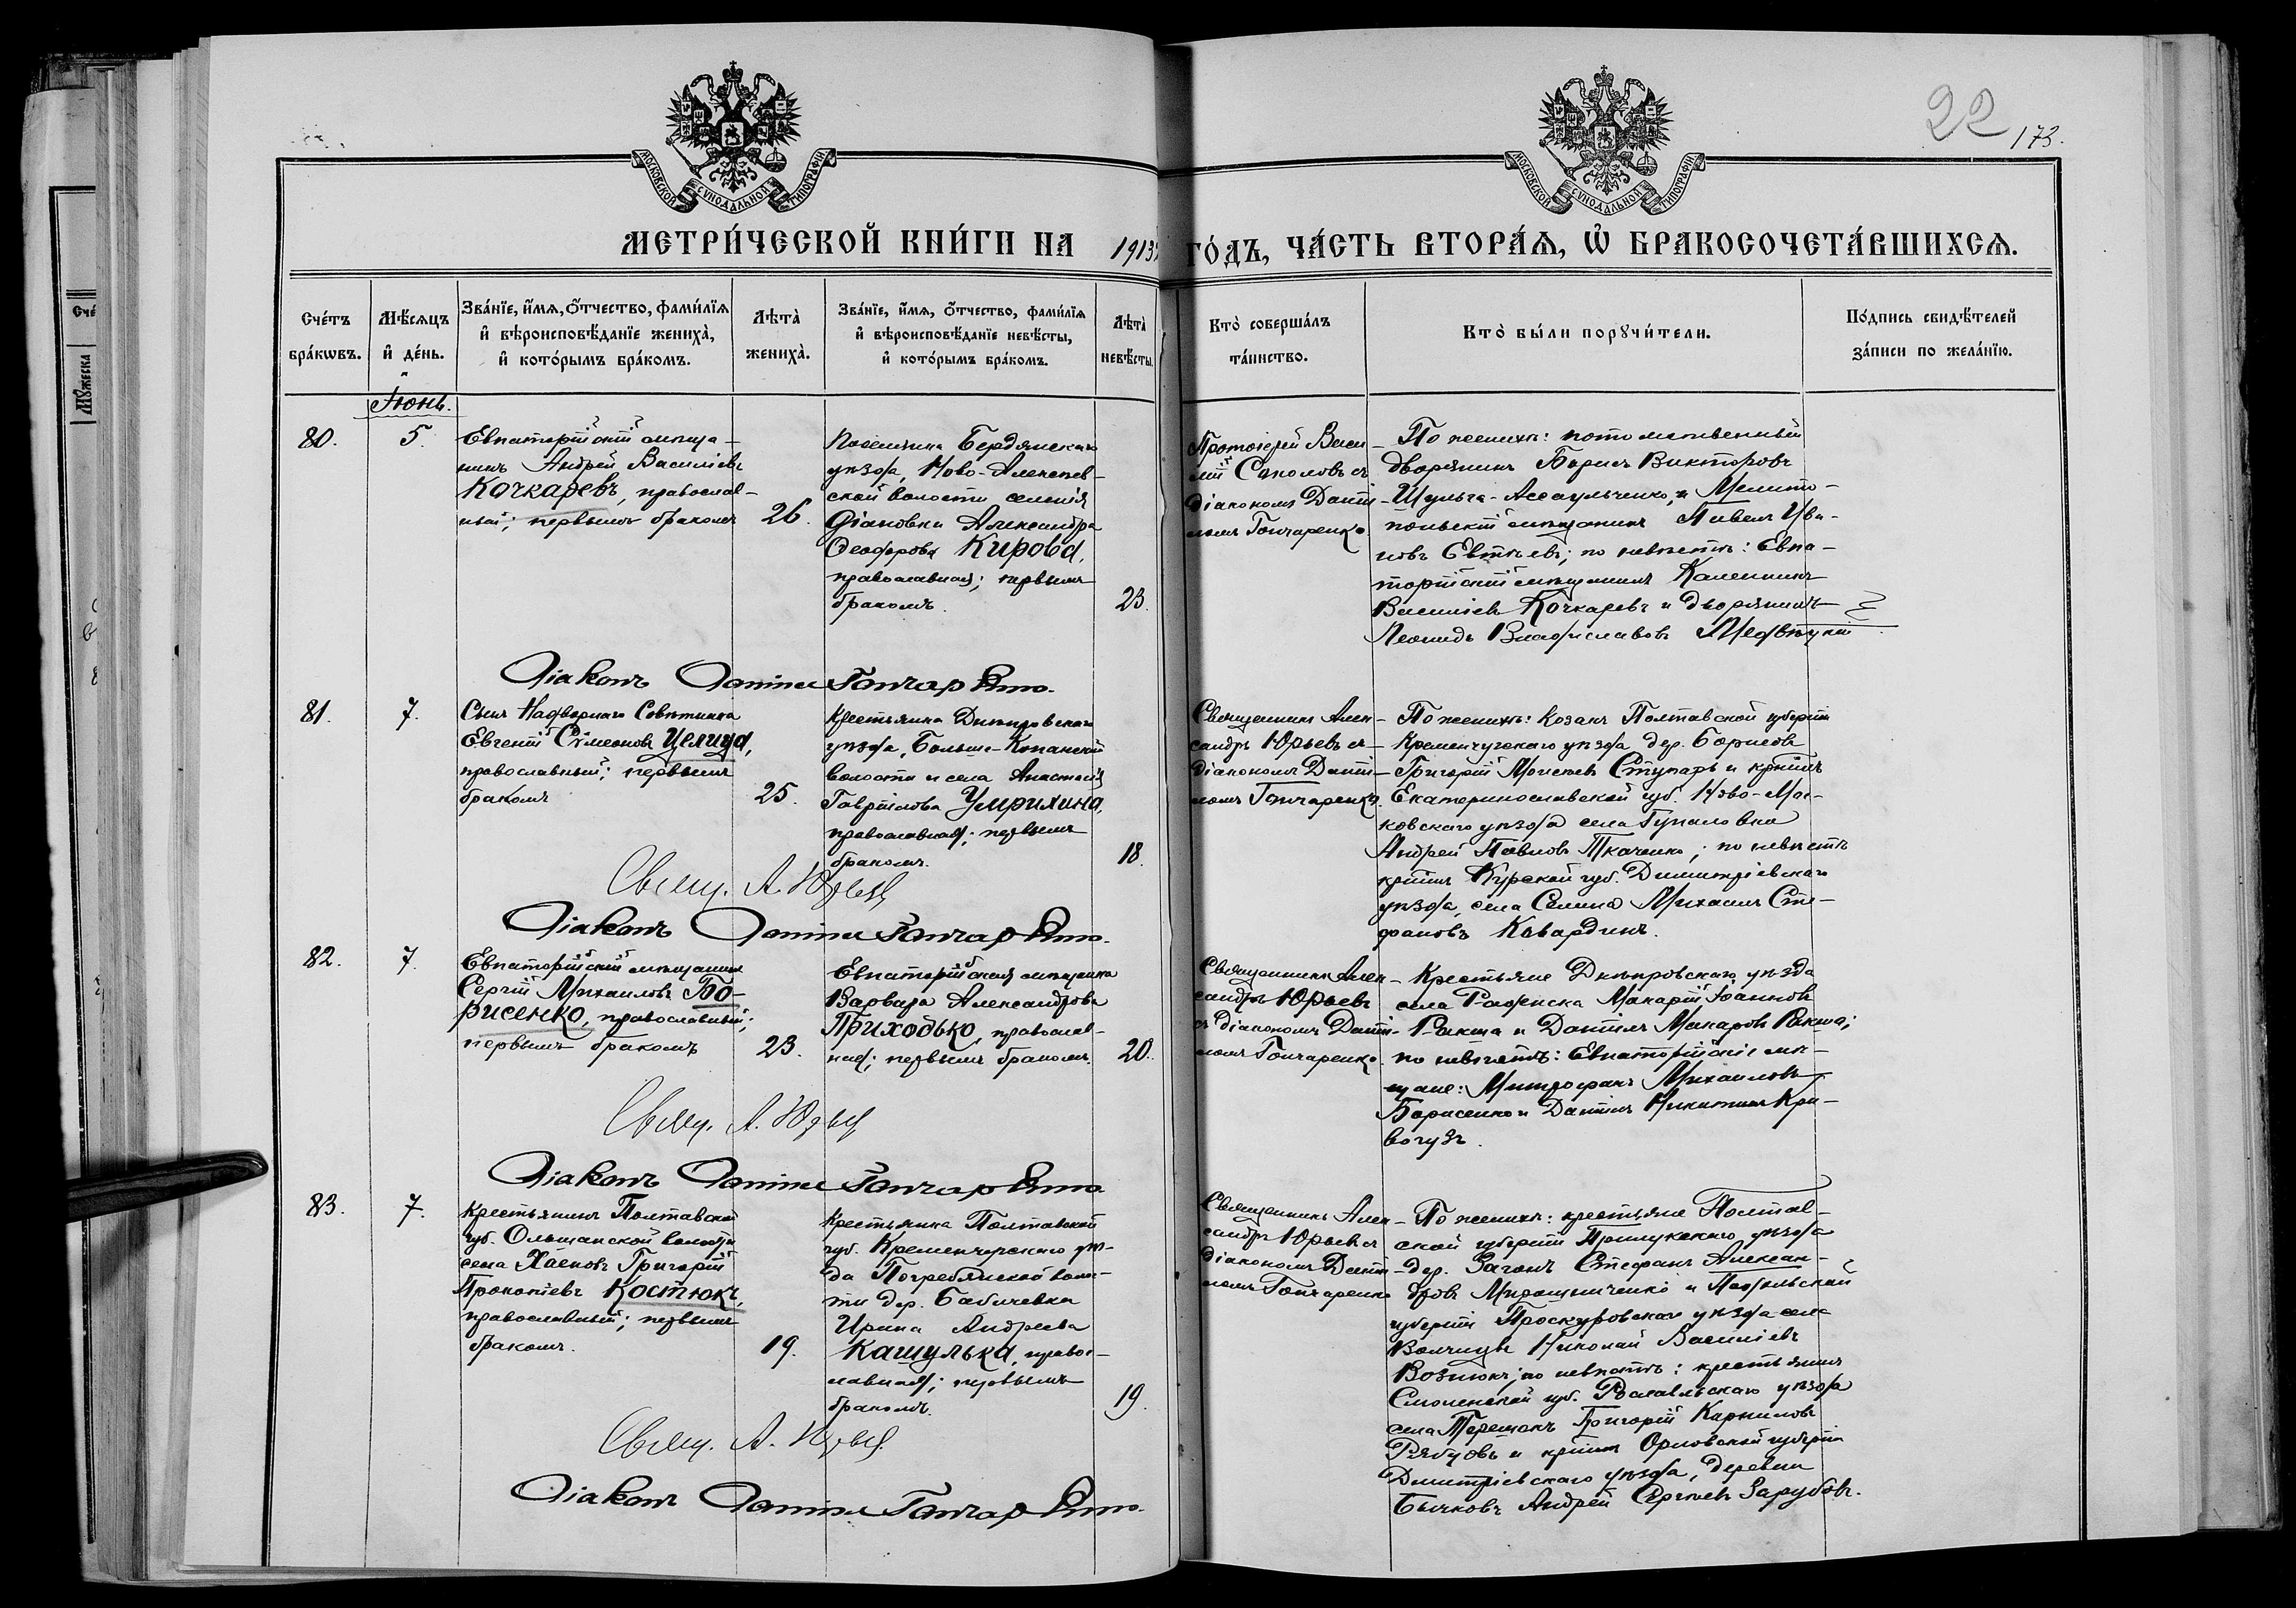 22
173.
МОСКОВСКОЙ СѴНОДАЛЬНОЙ ТИПОГРАФІИ
МОСКОВСКОЙ СѴНОДАЛЬНОЙ ТИПОГРАФІИ
МЕТРИ́ЧЕСКОЙ КНИ́ГИ НА 1913 ГО́ДЪ, ЧА́СТЬ ВТОРА́Я, Ѡ БРАКОСОЧЕТА́ВШИХСЯ.
Сче́тъ бра́кѡвъ.
Мѣ́сяцъ и де́нь.
Зва́нїе, и́мя, о́тчество, фами́лїя
и вѣроисповѣ́данїе жениха̀,
и кото́рымъ бра́комъ.
Лѣта̀ жениха̀.
Зва́нїе, и́мя, о́тчество, фами́лїя
и вѣроисповѣ́данїе невѣ́сты,
и кото́рымъ бра́комъ.
Лѣта̀ невѣ́сты.
Кто̀ соверша́лъ
та́инство.
Кто̀ бы́ли порꙋчи́тели.
По́дпись свидѣ́телей
за́писи по жела́нїю.
Іюнь.
80.
5.
Евпаторійскій мѣща-
нинъ Андрей Василіевъ
Кочкаревъ, православ-
ный; первымъ бракомъ
26.
Поселянка Бердянскаго
уѣзда, Ново-Алексѣев-
ской волости селенія
Діановки Александра
Ѳеодорова Кирова,
православная; первымъ
бракомъ.
23.
Протоіерей Васи-
лій Соколовъ съ
діакономъ Дані-
ломъ Гончаренко
По женихѣ: потомственный
дворянинъ Борисъ Викторовъ
Шульга-Ассаульченко, и Мелито-
польскій мѣщанинъ Павелъ Ива-
новъ Евтѣевъ; по невѣстѣ: Евпа-
торійскій мѣщанинъ Калинникъ
Василіевъ Кочкаревъ и дворянинъ
Леонидъ Владиславовъ
Діаконъ Даніилъ Гончаренко.
81.
7.
Сынъ Надворнаго Совѣтника
Евгеній Сѵмеоновъ Целица,
православный; первымъ
бракомъ
25.
Крестьянка Днѣпровскаго
уѣзда, Больше-Копанской
волости и села Анастасія
Гавріилова Умрихина,
православная; первымъ
бракомъ.
18.
Священникъ Алек-
сандръ Юрьевъ съ
діакономъ Дані-
ломъ Гончаренко.
По женихѣ: козакъ Полтавской губерніи
Кременчугскаго уѣзда дер. Борисовъ
Григорій Моисеевъ Ступаръ и кр-нинъ
Екатеринославской губ. Ново-Мос-
ковскаго уѣзда села Гупаловка
Андрей Павловъ Ткаченко; по невѣстѣ
кр-нинъ Курской губ. Димитріевскаго
уѣзда, села Селина Михаилъ Сте-
фановъ Кавардинъ.
Свящ. А. Юрьевъ
Діаконъ Даніилъ Гончаренко.
82.
7.
Евпаторійскій мѣщанинъ
Сергій Михаиловъ Бо-
рисенко, православный;
первымъ бракомъ
23.
Евпаторійская мѣщанка
Варвара Александрова
Приходько, православ-
ная; первымъ бракомъ.
20.
Священникъ Алек-
сандръ Юрьевъ
съ діакономъ Дані-
ломъ Гончаренко.
Крестьяне Днѣпровскаго уѣзда
села Макарій Іоанновъ
Ракша и Даніилъ Макаровъ Ракша;
по невѣстѣ: Евпаторійскіе мѣ-
щане: Митрофанъ Михаиловъ
Борисенко и Даніилъ Никитинъ Кри-
вогузъ.
Свящ. А. Юрьевъ
Діаконъ Даніилъ Гончаренко
83.
7.
Крестьянинъ Полтавской
губ. Ольшанской волости
села Хаенковъ Григорій
Прокопіевъ Костюкъ,
православный; первымъ
бракомъ.
19.
Крестьянка Полтавской
губ. Кременчугскаго уѣз-
да Погребянской волос-
ти дер. Бабичевка
Ирина Андреева
Кашулька, правос-
лавная; первымъ
бракомъ.
19.
Священникъ Алек-
сандръ Юрьевъ съ
діакономъ Дані-
ломъ Гончаренко
По женихѣ: крестьяне Полтав-
ской губерніи Прилукскаго уѣзда
дер. Загонъ Стефанъ Алексан-
дровъ Мирошниченко и Подольской
губерніи Проскуровскаго уѣзда села
Волчицы Николай Василіевъ
Вознюкъ; по невѣстѣ: крестьянинъ
Смоленской губ. Рославльскаго уѣзда
села Григорій Корниловъ
Рябцовъ и кр-нинъ Орловской губерніи
Димитріевскаго уѣзда, деревни
Бычковъ Андрей Сергѣевъ Зарубовъ.
Свящ. А. Юрьевъ
Діаконъ Даніилъ Гончаренко.